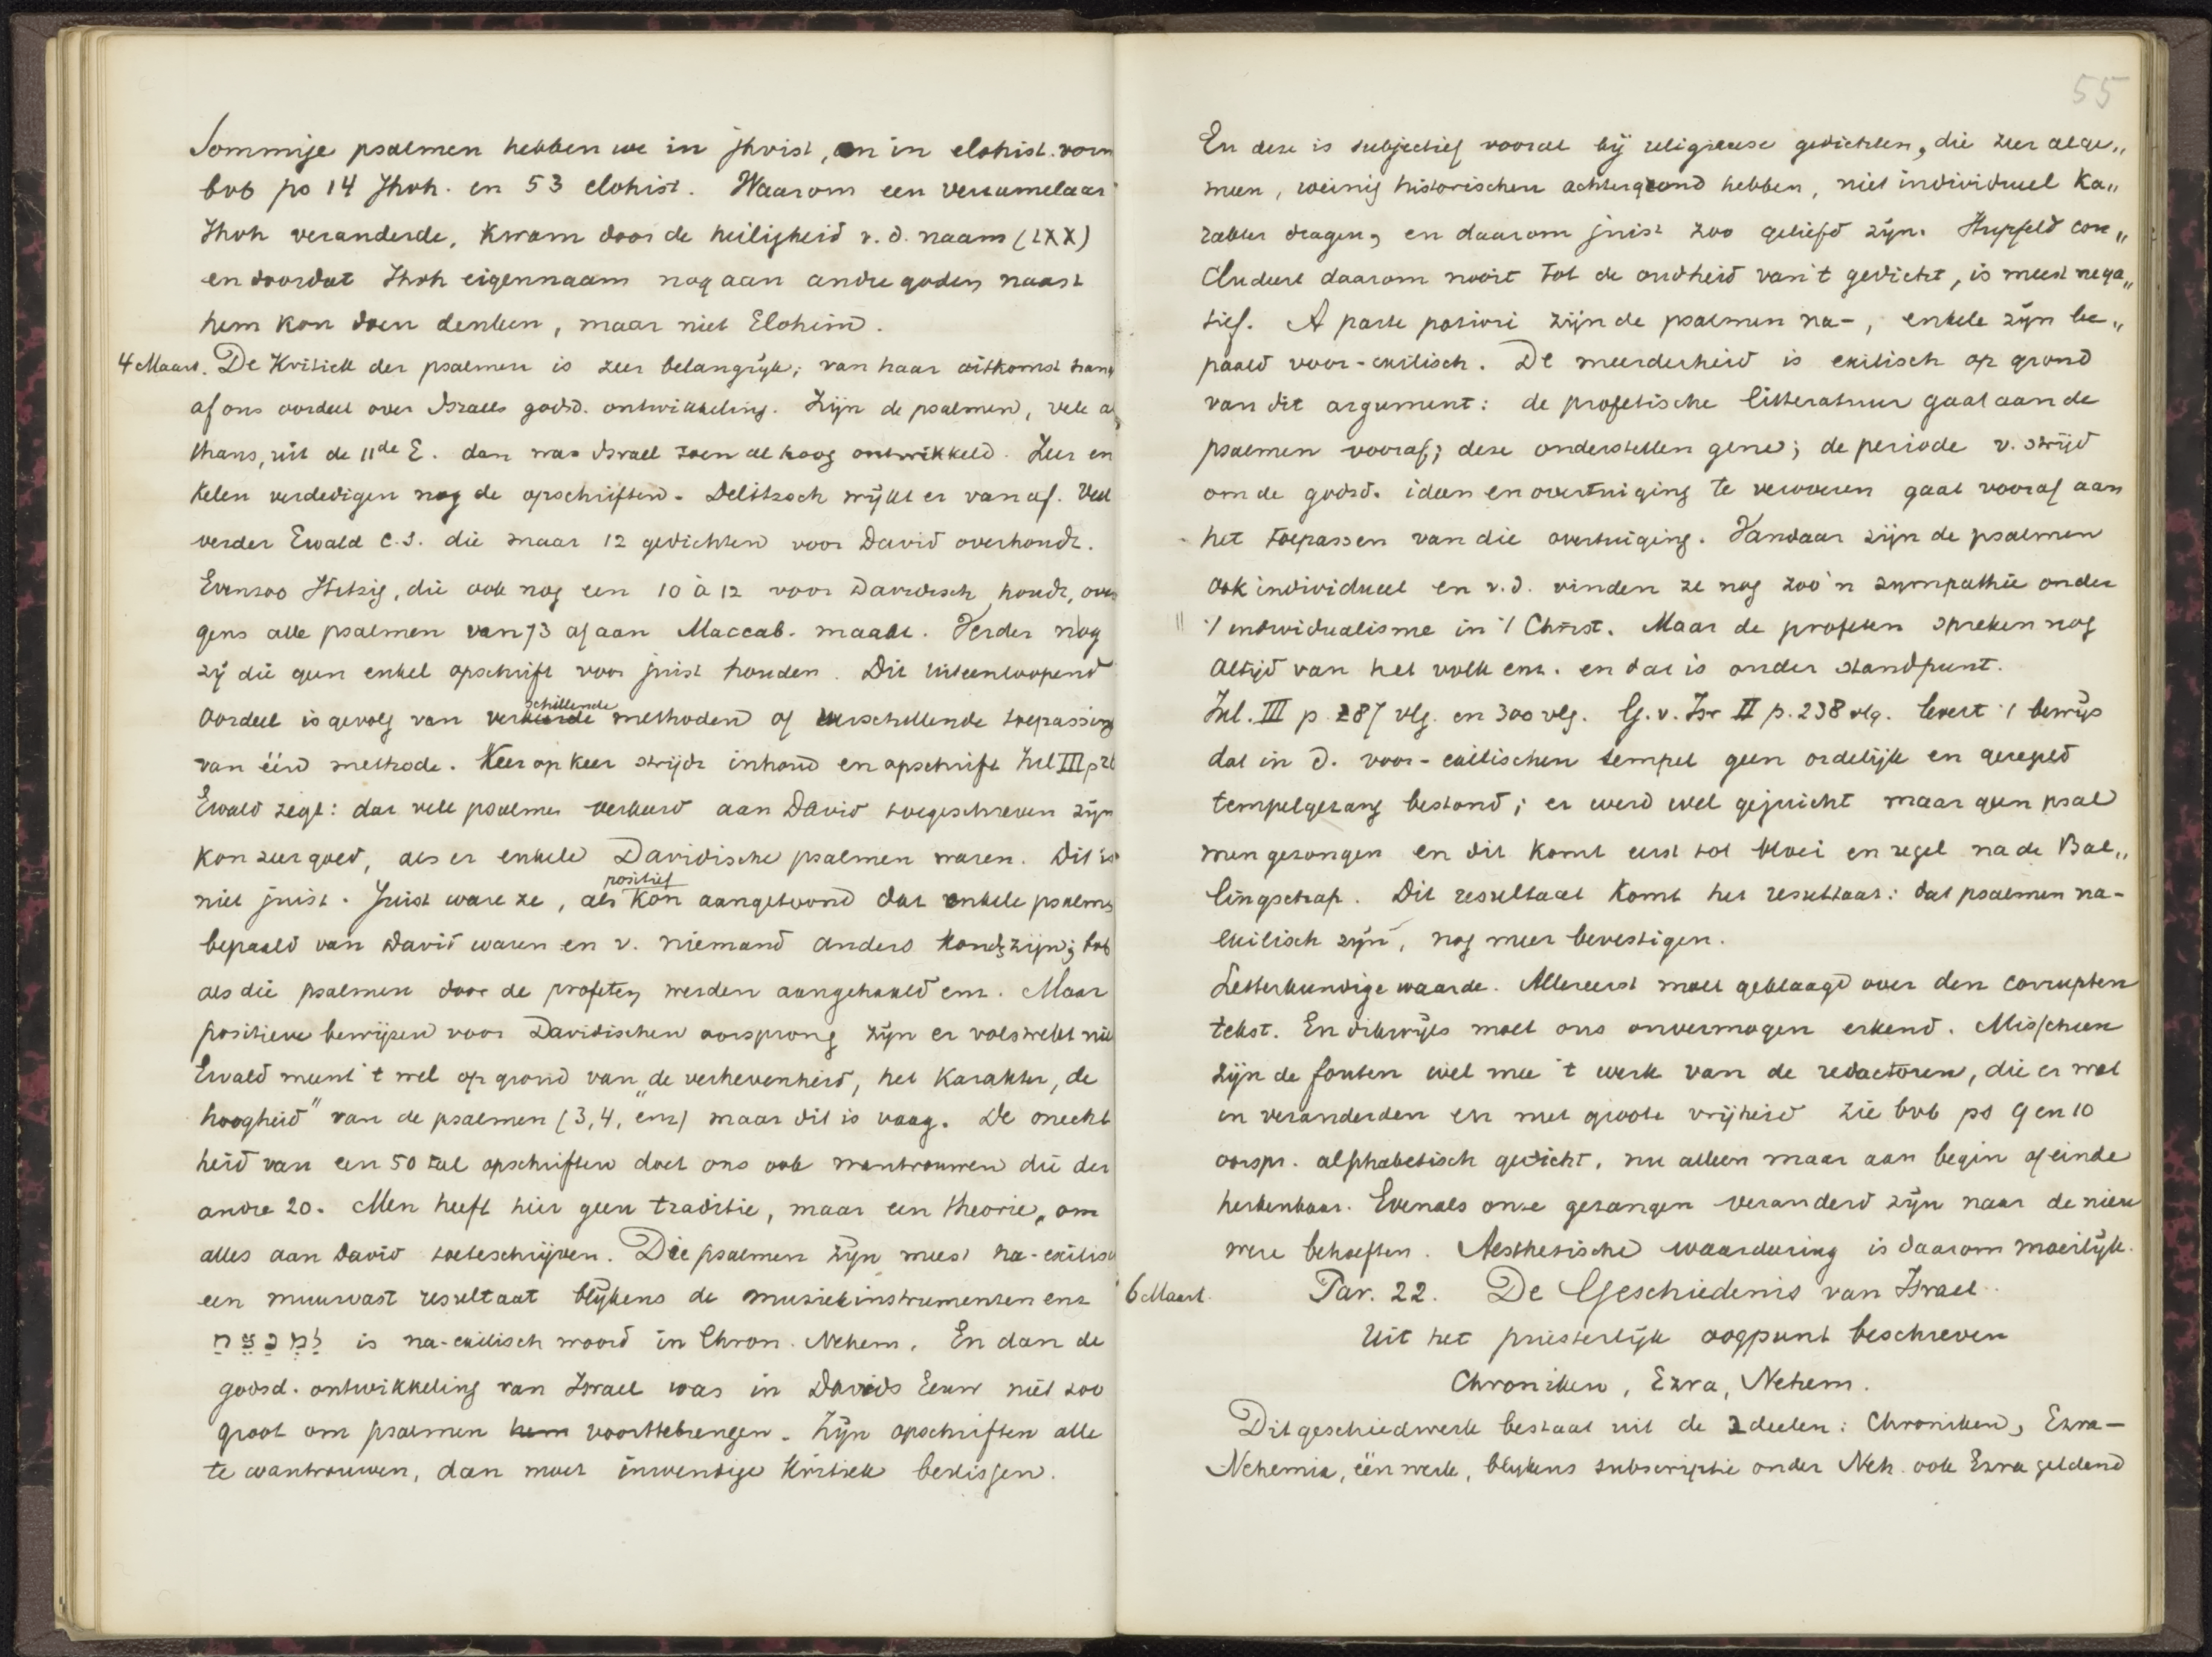 Sommige psalmen hebben we in jhvist, en in elohist. vorm
bvb ps 14 Jhvh. en 53 elohist. Waarom een verzamelaar
Jhvh veranderde, kwam door de heiligheid v. d. naam (LXX)
en doordat Jhvh eigennaam nog aan andre goden naast
hem kon doen denken, maar niet Elohim.
4 Maart. De Kritiek der psalmen is zeer belangrijk; van haar uitkomst hang
af ons oordeel over Israels godsd. ontwikkeling. Zijn de psalmen, vele al
thans, uit de 11de E. dan was Israel toen al hoog ontwikkeld. Zeer en
kelen verdedigen nog de opschriften. Delitzsch wijkt er van af. Veel
verder Ewald c.s. die maar 12 gedichten voor David overhoudt.
Evenzoo Hitzig, die ook nog een 10 à 12 voor Davidisch houdt, ove
gens alle psalmen van 73 af aan Maccab. maakt. Verder nog
zij die geen enkel opschrift voor juist houden. Dit uiteenloopend
schillende
oordeel is gevolg van verkeerde methoden of verschillende toepassing
van één methode. Keer op keer strijdt inhoud en opschrift Inl III p 26
Ewald zegt: dat vele psalmen verkeerd aan David toegeschreven zijn
kon zeer goed, als er enkele Davidische psalmen waren. Dit is
positief
niet juist. Juist ware ze, als kon aangetoond dat enkele psalmen
bepaald van David waren en v. niemand anders konden zijn; bvb
als die psalmen door de profeten werden aangehaald enz. Maar
positieve bewijzen voor Davidischen oorsprong zijn er volstrekt niet
Ewald meent 't wel op grond van „de verhevenheid, het karakter, de
hoogheid" van de psalmen (3, 4, enz) maar dit is vaag. De onecht
heid van een 50 tal opschriften doet ons ook wantrouwen die der
andre 20. Men heeft hier geen traditie, maar een theorie, om
alles aan David toeteschrijven. Die psalmen zijn meest na-exilisch
een muurvast resultaat blijkens de muziekinstrumenten enz
למנצח is na-exilisch woord in Chron. Nehem. En dan de
godsd. ontwikkeling van Israel was in Davids Eeuw niet zoo
groot om psalmen hem voorttebrengen. Zijn opschriften alle
te wantrouwen, dan moet inwendige Kritiek beslissen.
55
En deze is subjectief vooral bij religieuse gedichten, die zeer alge„
meen, weinig historischen achtergrond hebben, niet individueel ka„
rakter dragen, en daarom juist zoo geliefd zijn. Hupfeld con„
cludeert daarom nooit tot de oudheid van 't gedicht, is meest nega„
tief. A parte potiori zijn de psalmen na-, enkele zijn be„
paald voor-exilisch. De meerderheid is exilisch op grond
van dit argument: de profetische litteratuur gaat aan de
psalmen vooraf; deze onderstellen gene; de periode v. strijd
om de godsd. ideen en overtuiging te veroveren gaat vooraf aan
het toepassen van die overtuiging. Vandaar zijn de psalmen
ook individueel en v.d. vinden ze nog zoo'n sympathie onder
't individualisme in 't Christ. Maar de profeten spreken nog
altijd van het volk enz. en dat is ander standpunt.
Inl. III p 287 vlg. en 300 vlg. G. v. Isr II p. 238 vlg. levert 't bewijs
dat in d. voor-exilischen tempel geen ordelijk en geregeld
tempelgezang bestond; er werd wel gejuicht maar geen psal
men gezongen en dit komt eerst tot bloei en regel na de Bal„
lingschap. Dit resultaat komt het resultaat: dat psalmen na-
exilisch zijn, nog meer bevestigen.
Letterkundige waarde. Allereerst moet geklaagd over den corrupten
tekst. En dikwijls moet ons onvermogen erkend. Misschien
zijn de fouten wel mee 't werk van de redactoren, die er wat
in veranderden en met groote vrijheid zie bvb ps 9 en 10
oorspr. alphabetisch gedicht, nu alleen maar aan begin of einde
herkenbaar. Evenals onze gezangen veranderd zijn naar de nieu
were behoeften. Aesthetische waardeering is daarom moeilijk.
6 Maart. Par. 22. De Geschiedenis van Israel
Uit het priesterlijk oogpunt beschreven
Chroniken, Ezra, Nehem.
Dit geschiedwerk bestaat uit de 2 deelen: Chroniken, Ezra—
Nehemia, één werk, blijkens subscriptie onder Neh. ook Ezra geldend